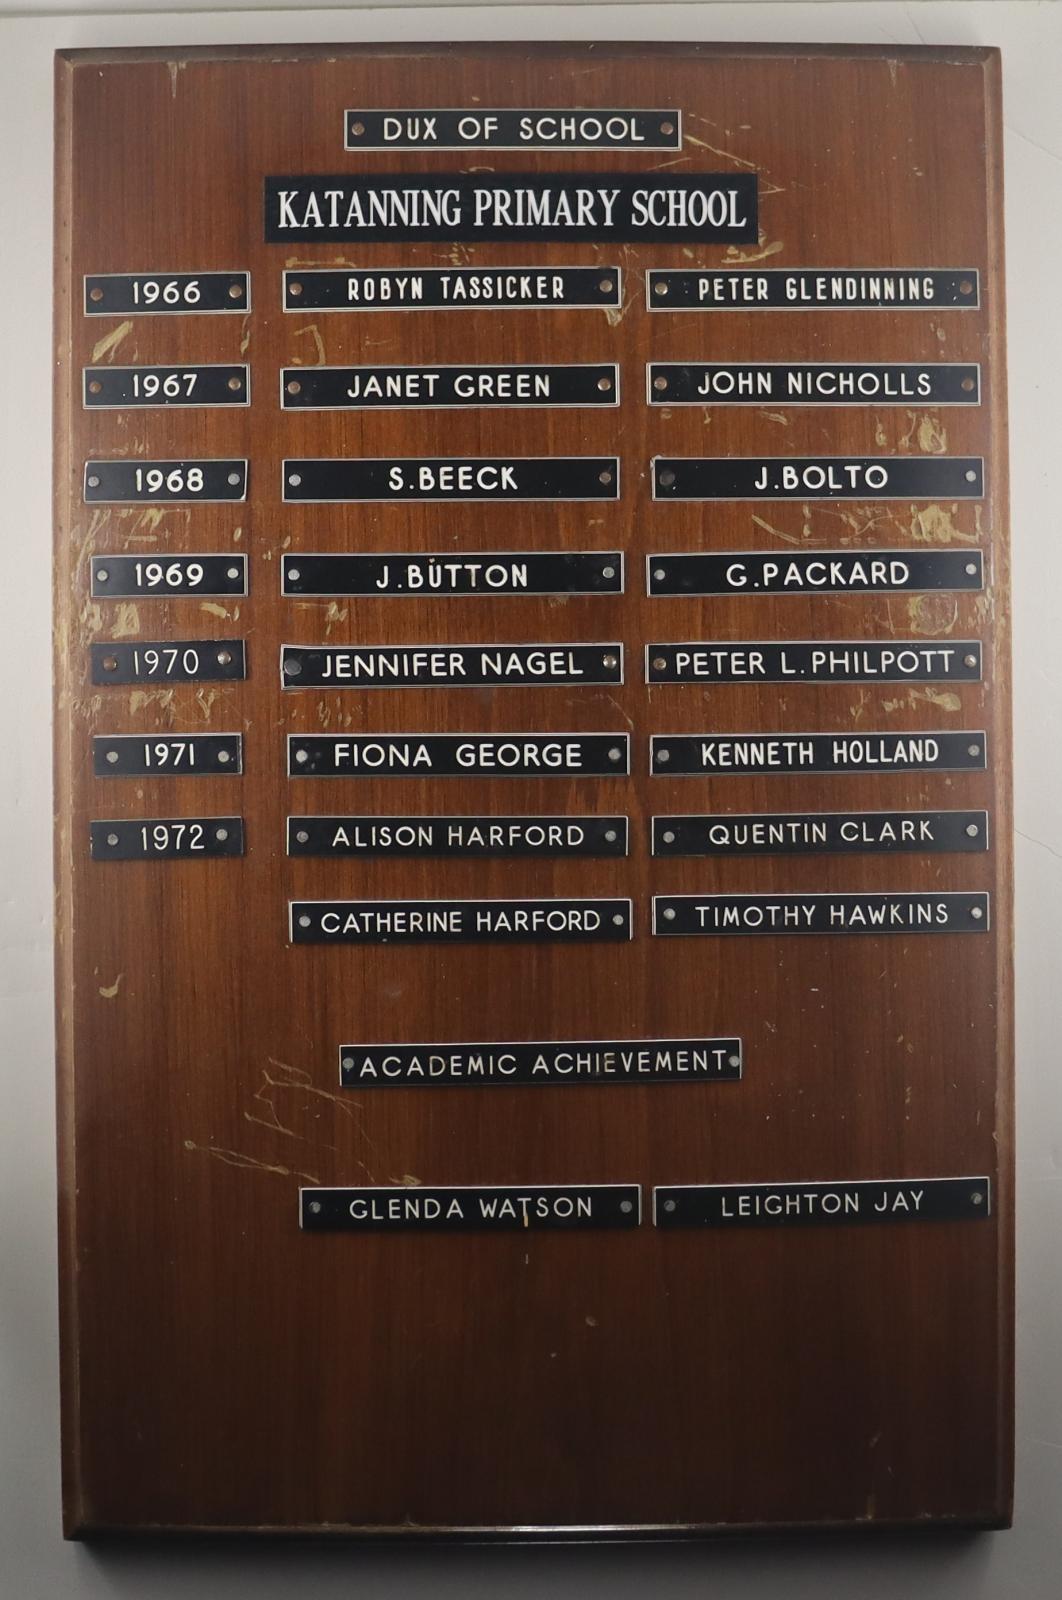 DUX OF SCHOOL
KATANNING PRIMARY SCHOOL
1966 ROBYN TASSICKER PETER GLENDINNING
1967 JANET GREEN JOHN NICHOLLS
1968 S.BEECK J.BOLTO
1969 J.BUTTON G.PACKARD
1970 JENNIFER NAGEL PETER L.PHILPOTT
1971 FIONA GEORGE KENNETH HOLLAND
1972 ALISON HARFORD QUENTIN CLARK
CATHERINE HARFORD TIMOTHY HAWKINS
ACADEMIC ACHIEVEMENT
GLENDA WATSON LEIGHTON JAY